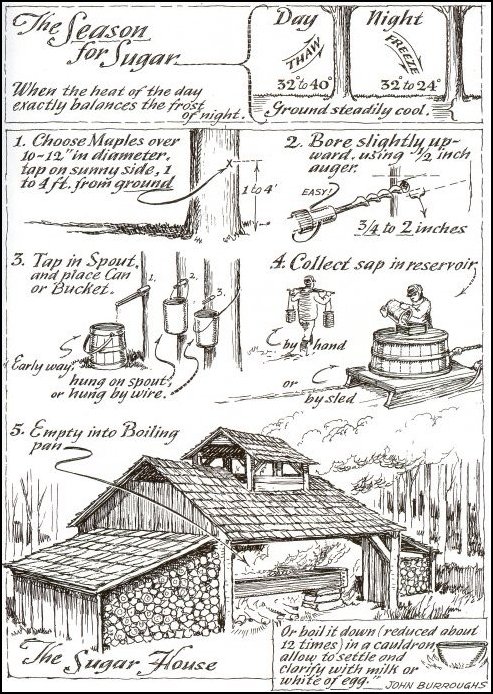 The Season
for Sugar
When the heat of the day
exactly balances the frost
of night.
Day
Night
THAW
FREEZE
32° to 40°
32° to 24°
Ground steadily cool.
1. Choose Maples over
10-12" in diameter,
tap on sunny side, 1
to 4 ft. from ground
X
1 to 4'
2. Bore slightly up-
ward, using 1/2 inch
auger.
EASY!
3/4 to 2 inches
3. Tap in Spout,
and place Can
or Bucket.
1.
2.
3.
Early way,
hung on spout,
or hung by wire.
4. Collect sap in reservoir
by hand
or
by sled
5. Empty into Boiling
pan
The Sugar House
Or boil it down (reduced about
12 times) in a cauldron,
allow to settle and
clarify with milk or
white of egg."
JOHN BURROUGHS